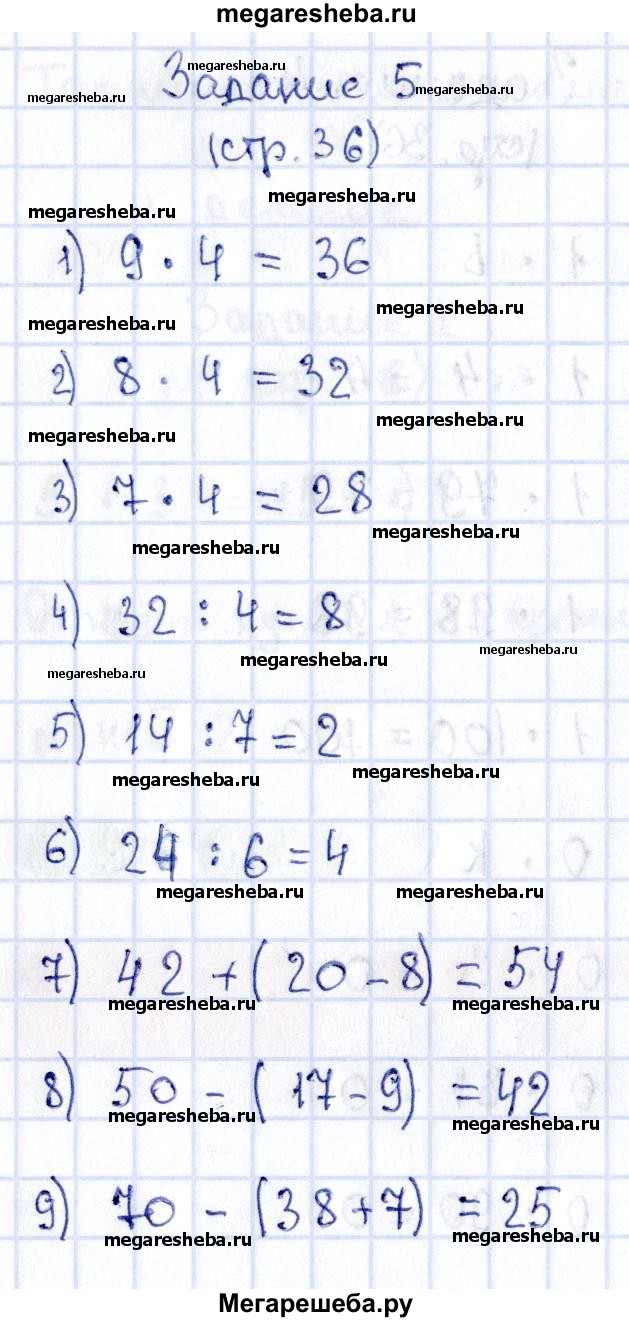 megaresheba.ru
megaresheba.ru
Задание 5
megaresheba.ru
megaresheba.ru
(стр. 36)
megaresheba.ru
megaresheba.ru
1) 9 · 4 = 36
megaresheba.ru
megaresheba.ru
2) 8 · 4 = 32
megaresheba.ru
megaresheba.ru
3) 7 · 4 = 28
megaresheba.ru
megaresheba.ru
4) 32 : 4 = 8
megaresheba.ru
megaresheba.ru
megaresheba.ru
5) 14 : 7 = 2
megaresheba.ru
megaresheba.ru
6) 24 : 6 = 4
megaresheba.ru
megaresheba.ru
7) 42 + (20 - 8) = 54
megaresheba.ru
megaresheba.ru
8) 50 - (17 - 9) = 42
megaresheba.ru
megaresheba.ru
9) 70 - (38 + 7) = 25
megaresheba.ru
megaresheba.ru
Мегарешеба.ру